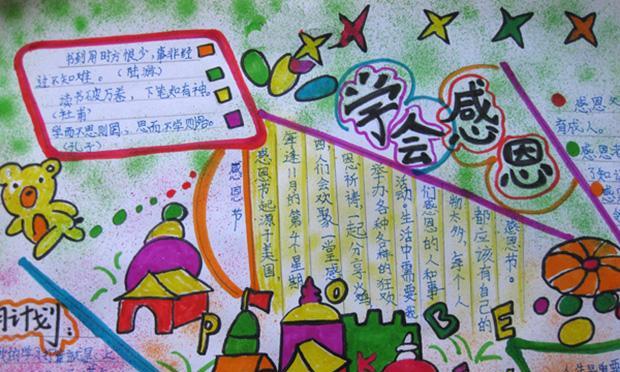 书到用时方恨少,事非经
过不知难。(陆游)
读书破万卷,下笔如有神。
(杜甫)
学而不思则罔,思而不学则殆。
(孔子)
学会感恩
感恩节
感恩节起源于美国,
每逢11月的第4个星期
四,人们会欢聚一堂感
恩祈祷,一起分享火鸡
举办各种各样的狂欢
活动。生活中需要我
们感恩的人和事
物太多,每个人
都应该有自己的
感恩节。
感恩父
育成人。
感恩老
了知识
感恩
月计划:
P
O
K
B
E